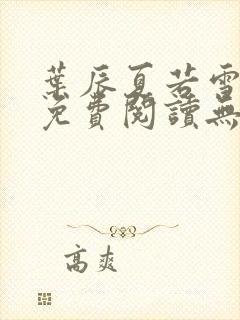 葉辰夏若雪
免費閱讀無
高爽